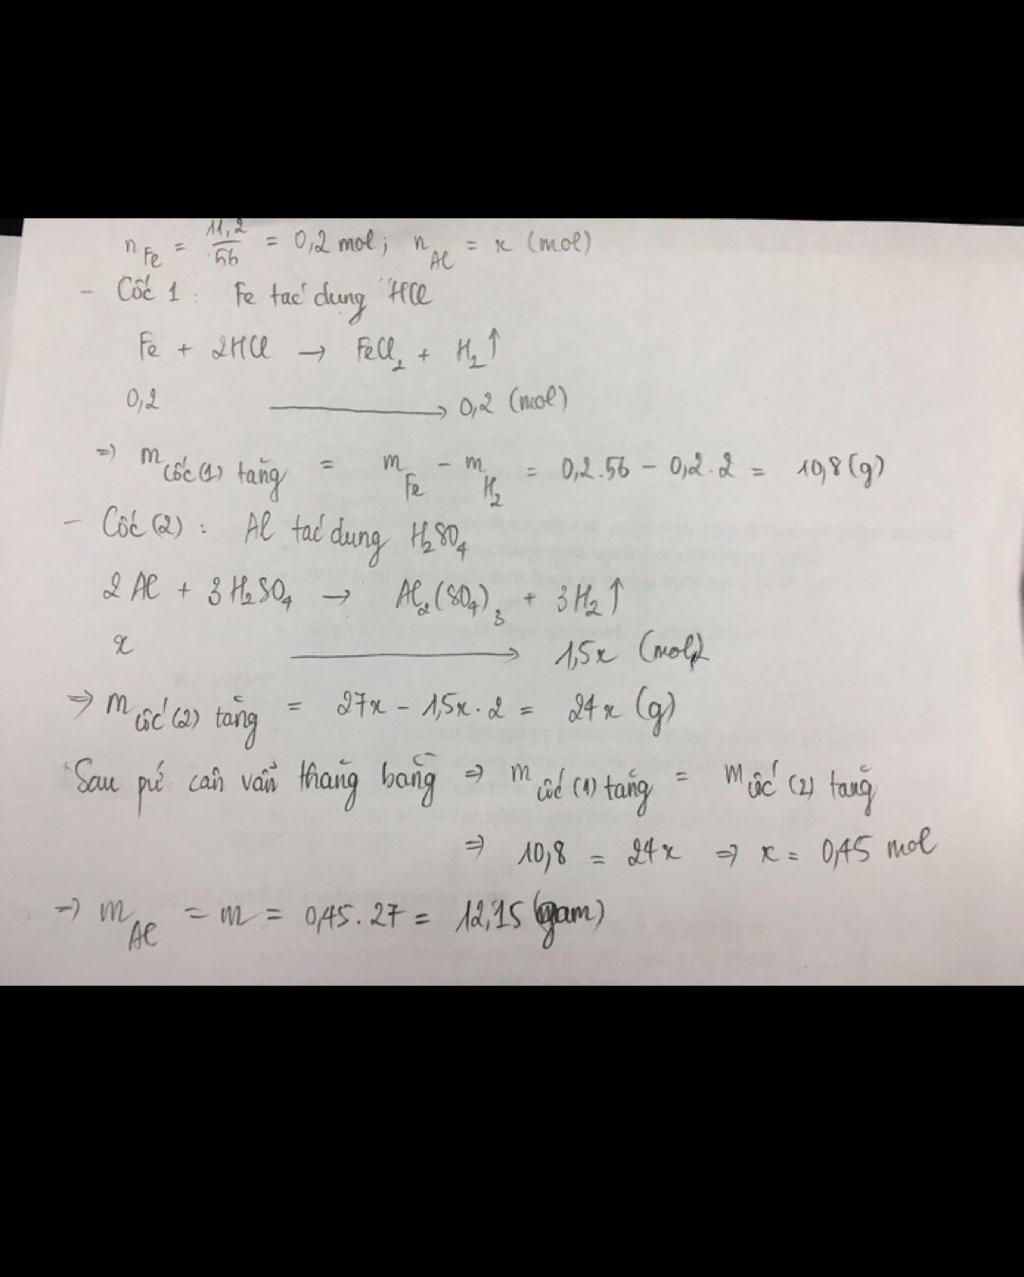 n Fe = 11,2/56 = 0,2 mol; n Al = x (mol)
- Cốc 1: Fe tác dung HCl
Fe + 2HCl → FeCl₂ + H₂↑
0,2 → 0,2 (mol)
=> m cốc(1) tăng = m Fe - m H₂ = 0,2.56 - 0,2.2 = 10,8(g)
- Cốc (2): Al tác dung H₂SO₄
2Al + 3H₂SO₄ → Al₂(SO₄)₃ + 3H₂↑
x → 1,5x (mol)
=> m cốc (2) tăng = 27x - 1,5x.2 = 24x (g)
Sau pứ cân vẫn thăng bằng => m cốc (1) tăng = m cốc (2) tăng
=> 10,8 = 24x => x = 0,45 mol
=> m Al = m = 0,45.27 = 12,15 (gam)